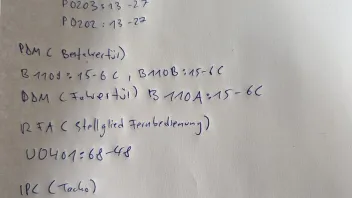 P0203:13-27
P0202:13-27
PDM (Beifahrertür)
B110A:15-6C, B110B:15-6C
DDM (Fahrertür) B110A:15-6C
RFA (Stellglied Fernbedienung)
U0401:68-48
IPC (Tacho)